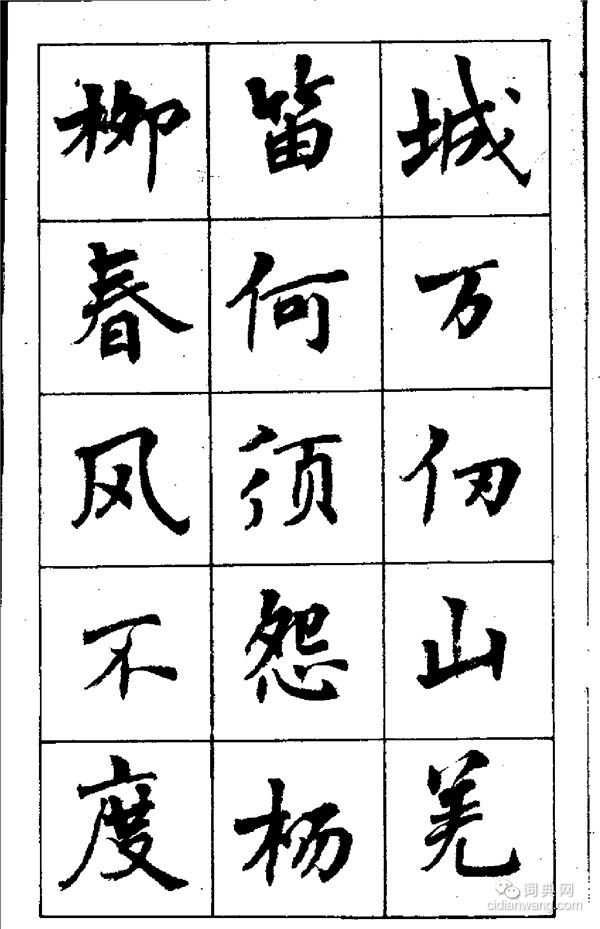 城万仞山羌
笛何须怨杨
柳春风不度
词典网
cidianwang.com